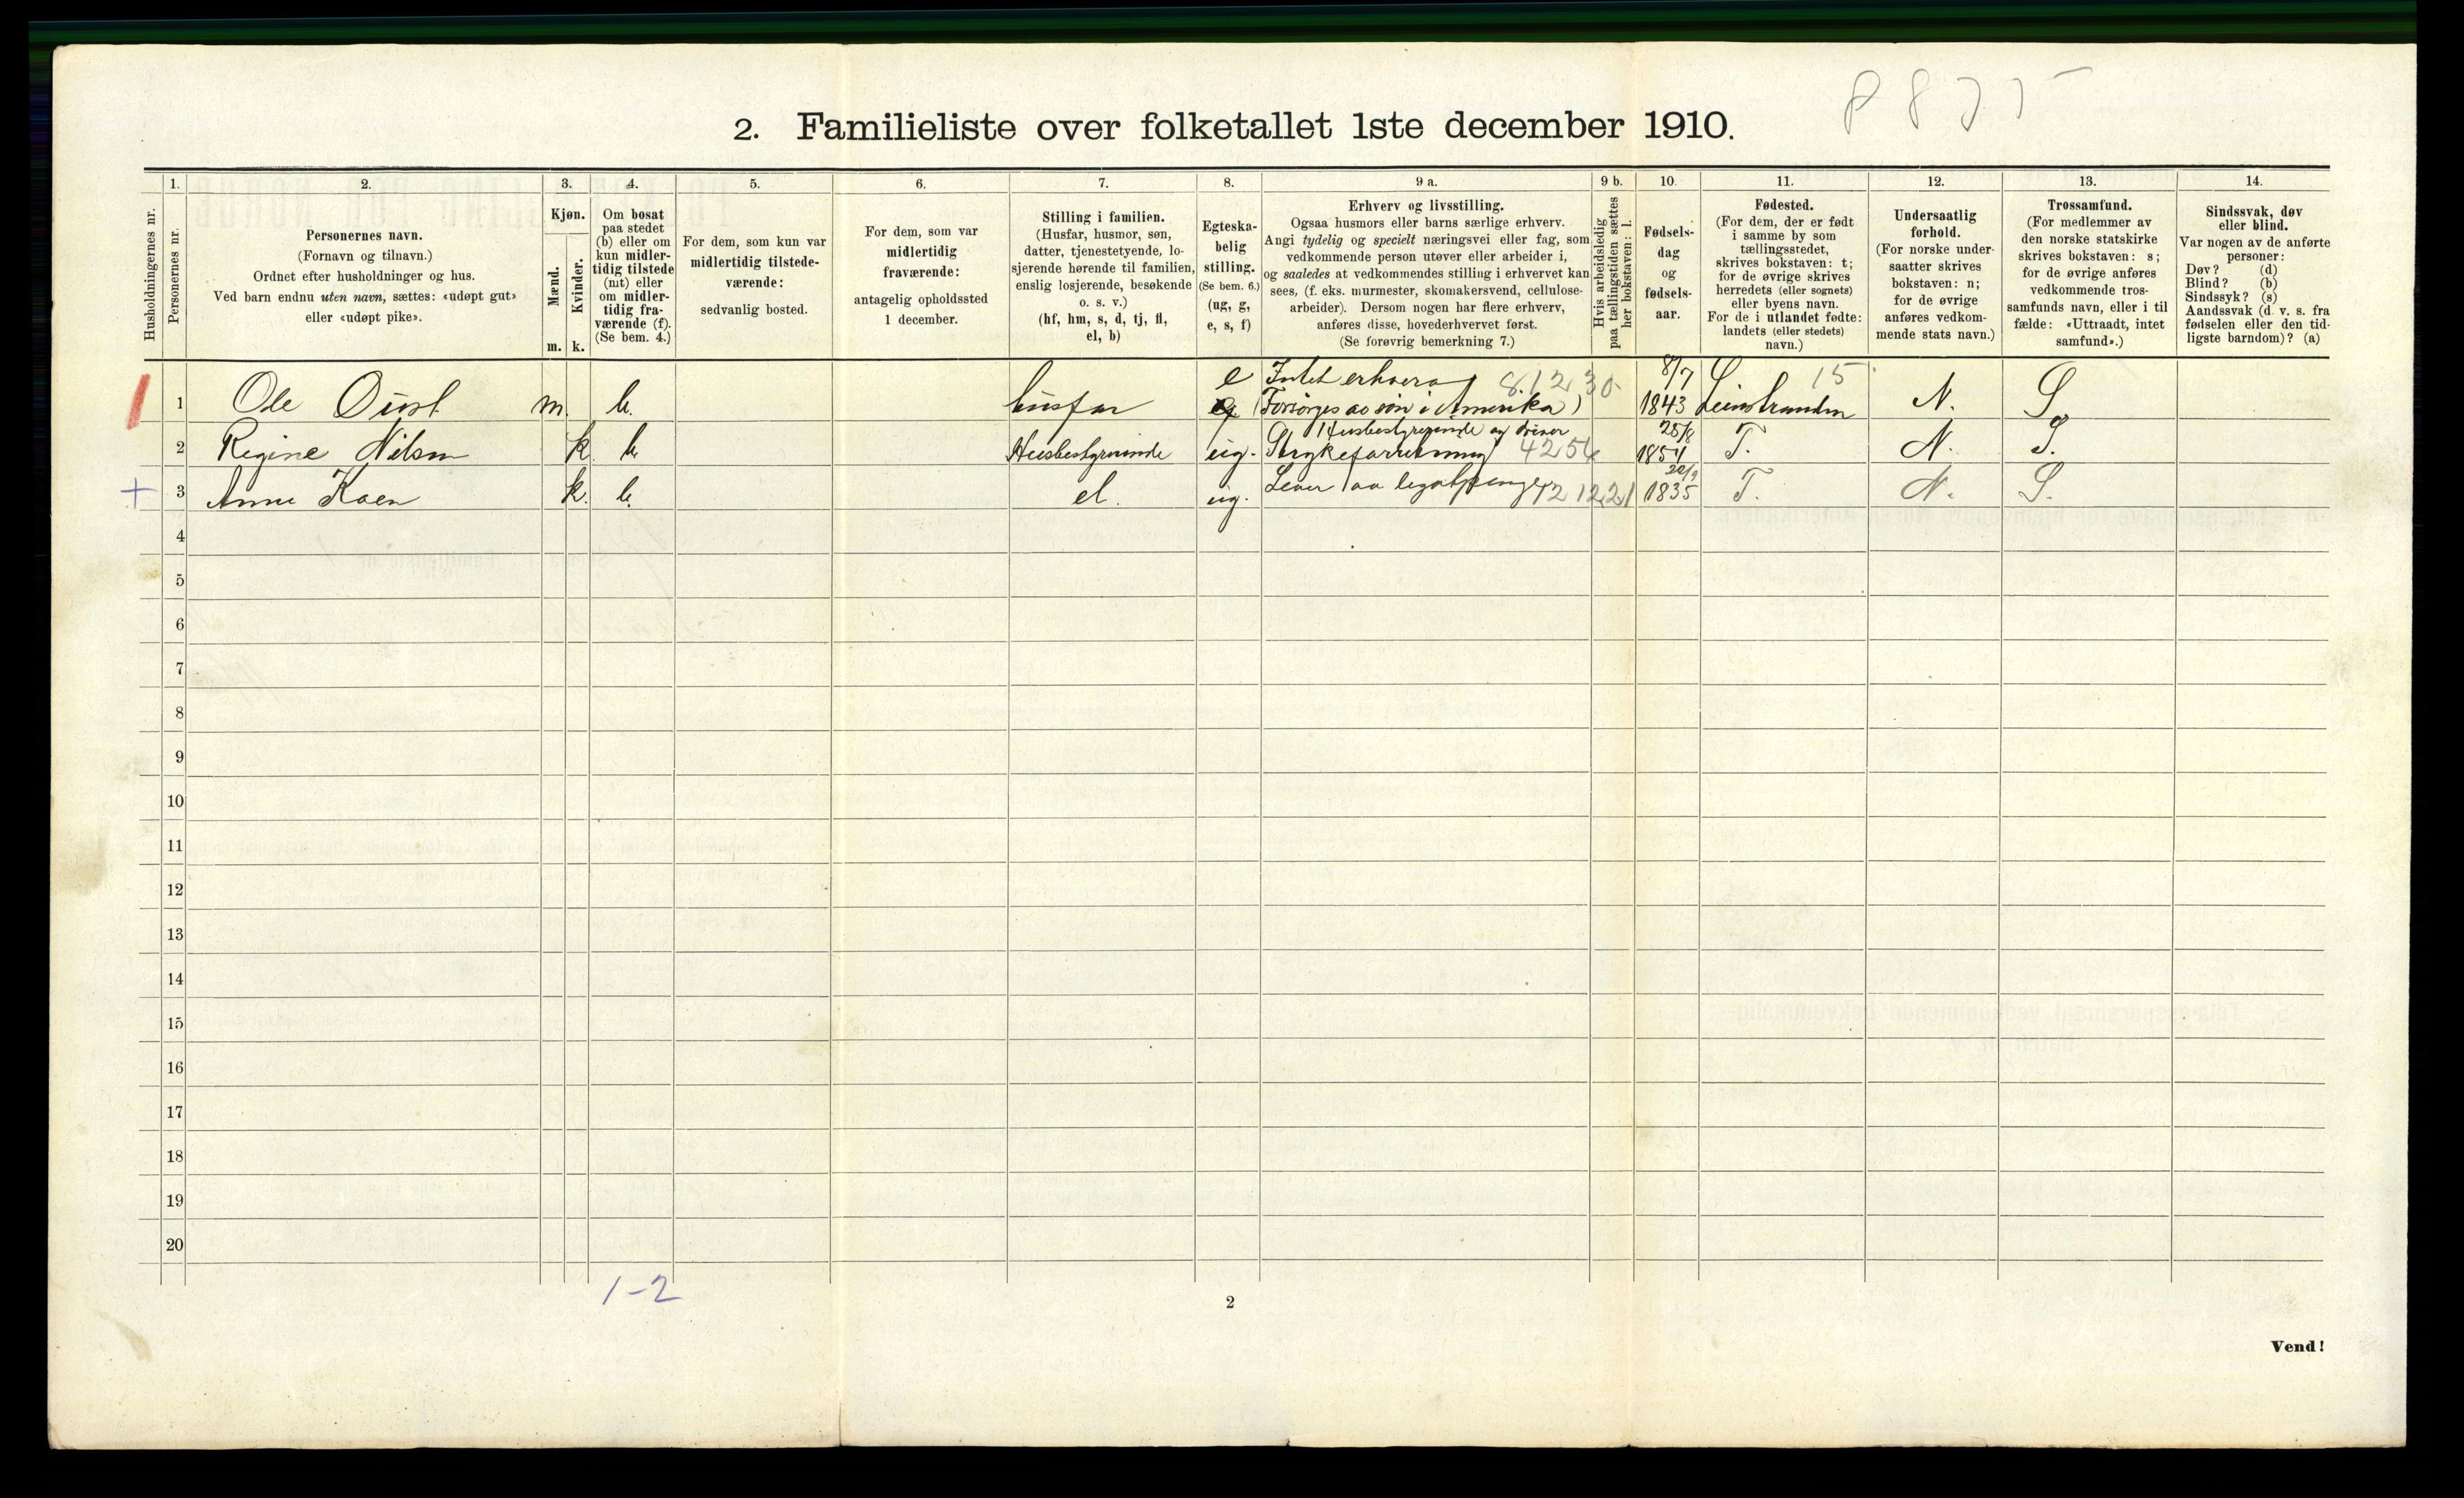 P 8775
2. Familieliste over folketallet 1ste december 1910.
Husholdningernes nr.
1.
Personernes nr.
2.
Personernes navn.
(Fornavn og tilnavn.)
Ordnet efter husholdninger og hus.
Ved barn endnu uten navn, sættes: «udøpt gut»
eller «udøpt pike».
3.
Kjøn.
Mænd.
Kvinder.
m. k.
4.
Om bosat
paa stedet
(b) eller om
kun midler-
tidig tilstede
(mt) eller
om midler-
tidig fra-
værende (f).
(Se bem. 4.)
5.
For dem, som kun var
midlertidig tilstede-
værende:
sedvanlig bosted.
6.
For dem, som var
midlertidig
fraværende:
antagelig opholdssted
1 december.
7.
Stilling i familien.
(Husfar, husmor, søn,
datter, tjenestetyende, lo-
sjerende hørende til familien,
enslig losjerende, besøkende
o. s. v.)
(hf, hm, s, d, tj, fl,
el, b)
8.
Egteska-
belig
stilling.
(Se bem. 6.)
(ug, g,
e, s, f)
9 a.
Erhverv og livsstilling.
Ogsaa husmors eller barns særlige erhverv.
Angi tydelig og specielt næringsvei eller fag, som
vedkommende person utøver eller arbeider i,
og saaledes at vedkommendes stilling i erhvervet kan
sees, (f. eks. murmester, skomakersvend, cellulose-
arbeider). Dersom nogen har flere erhverv,
anføres disse, hovederhvervet først.
(Se forøvrig bemerkning 7.)
9 b.
Hvis arbeidsledig
paa tællingstiden sættes
her bokstaven: l.
10.
Fødsels-
dag
og
fødsels-
aar.
11.
Fødested.
(For dem, der er født
i samme by som
tællingsstedet,
skrives bokstaven: t;
for de øvrige skrives
herredets (eller sognets)
eller byens navn.
For de i utlandet fødte:
landets (eller stedets)
navn.)
12.
Undersaatlig
forhold.
(For norske under-
saatter skrives
bokstaven: n;
for de øvrige
anføres vedkom-
mende stats navn.)
13.
Trossamfund.
(For medlemmer av
den norske statskirke
skrives bokstaven: s;
for de øvrige anføres
vedkommende tros-
samfunds navn, eller i til
fælde: «Uttraadt, intet
samfund».)
14.
Sindssvak, døv
eller blind.
Var nogen av de anførte
personer:
Døv? (d)
Blind? (b)
Sindssyk? (s)
Aandssvak (d. v. s. fra
fødselen eller den tid-
ligste barndom)? (a)
e Intet erhverv 8.12.30 8/7 15
1 Ole Oust m. b. husfar (Forsørges av søn i Amerika) 1843 Leinstranden N. S.
Husbestyrerinde og driver 25/8
2 Regine Nilsen k. b. Husbestyrerinde ug. Strykeforretning 4254 1854 T. N. S.
+ 3 Anne Kaen k. b. el. ug. Lever av legatpenger 12 12.21 1835 T. N. S.
4
5
6
7
8
9
10
11
12
13
14
15
16
17
18
19
20
1-2
2
Vend!